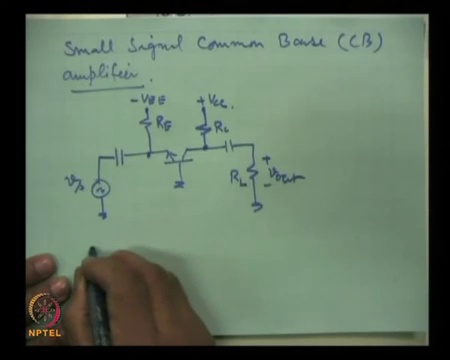 Small Signal Common Base (CB)
amplifier.
- VEE
+ Vcc.
RE
Rc
vs
RL
+
vout
-
NPTEL